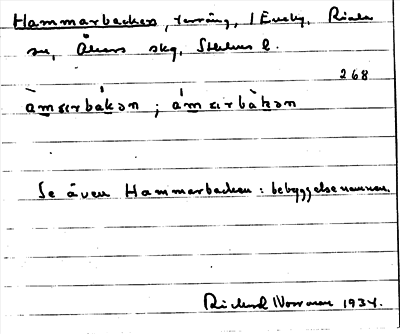 Hammarbacken, terräng, 1 Eneby, Riala
sn, Åkers skg, Sthlms l.
268
àmαrbákən ; ámαrbàkən
Se även Hammarbacken: bebyggelsenamnen.
Rickard Norrman 1934.